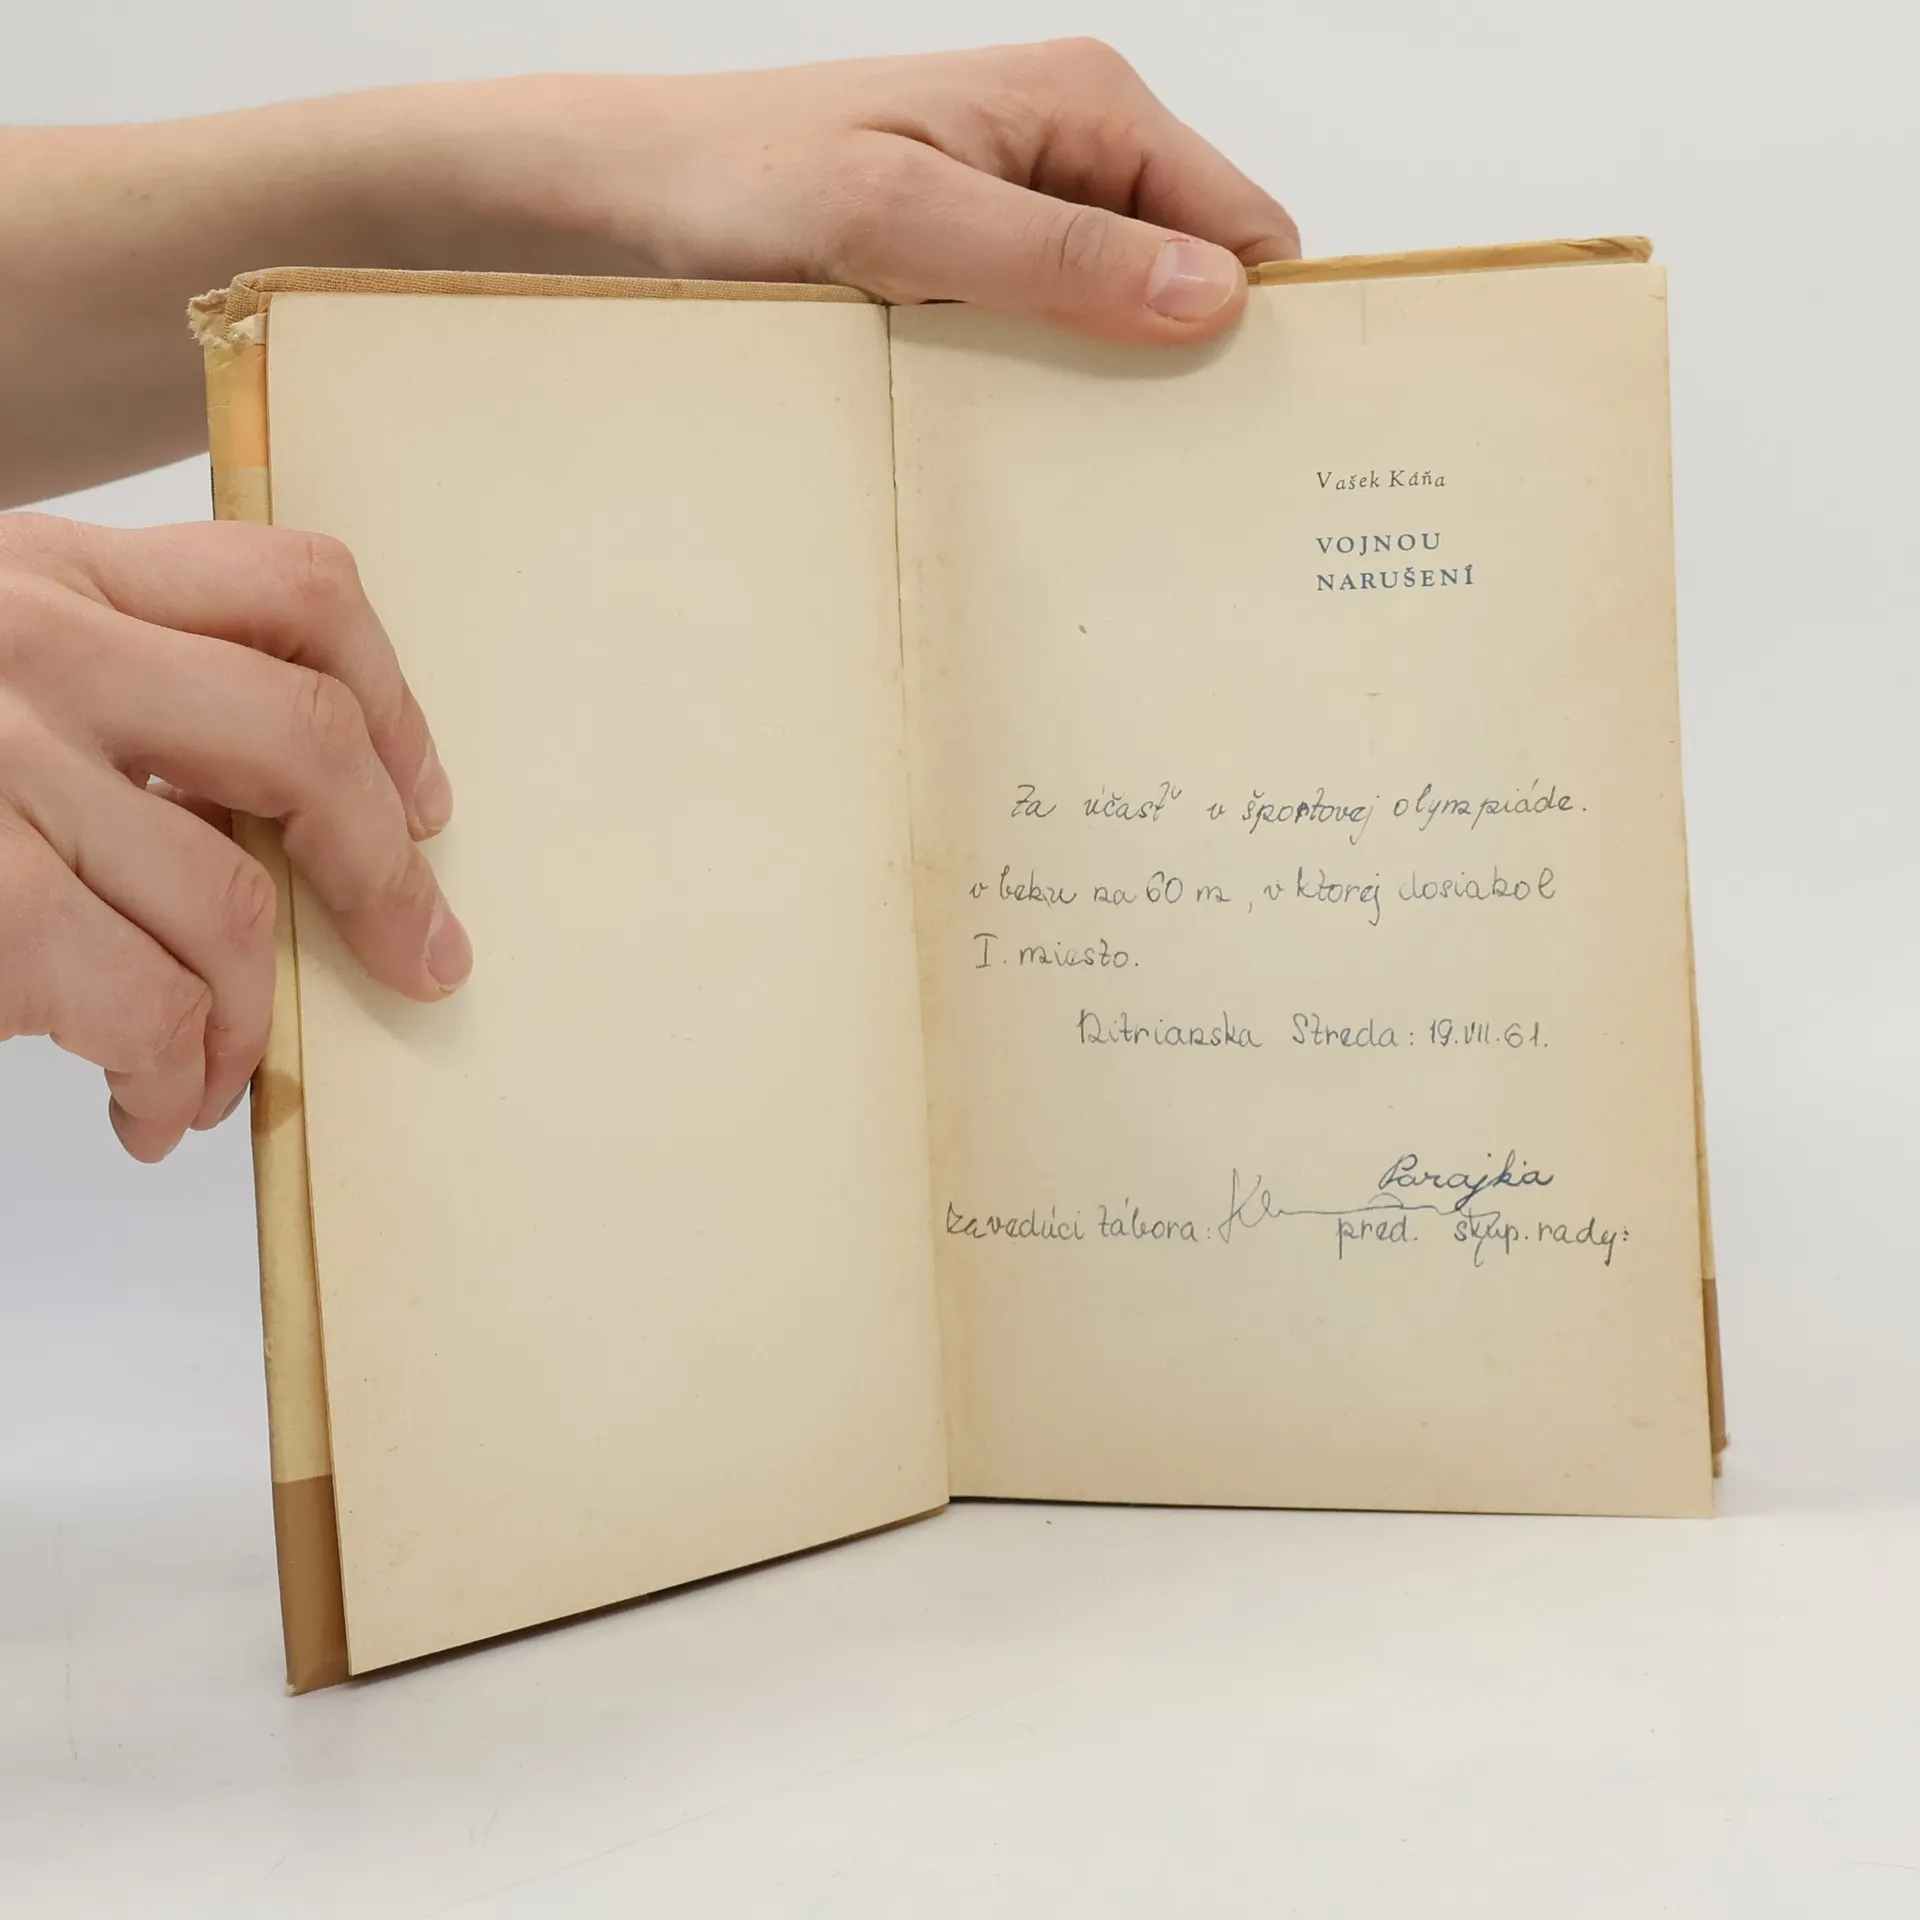 Vašek Káňa
VOJNOU
NARUŠENÍ
Za účasť v športovej olympiáde.
v behu na 60 m, v ktorej dosiahol
I. miesto.
Nitrianska Streda: 19.VII.61.
Parajka
zavedúci tábora:
pred. skup. rady: